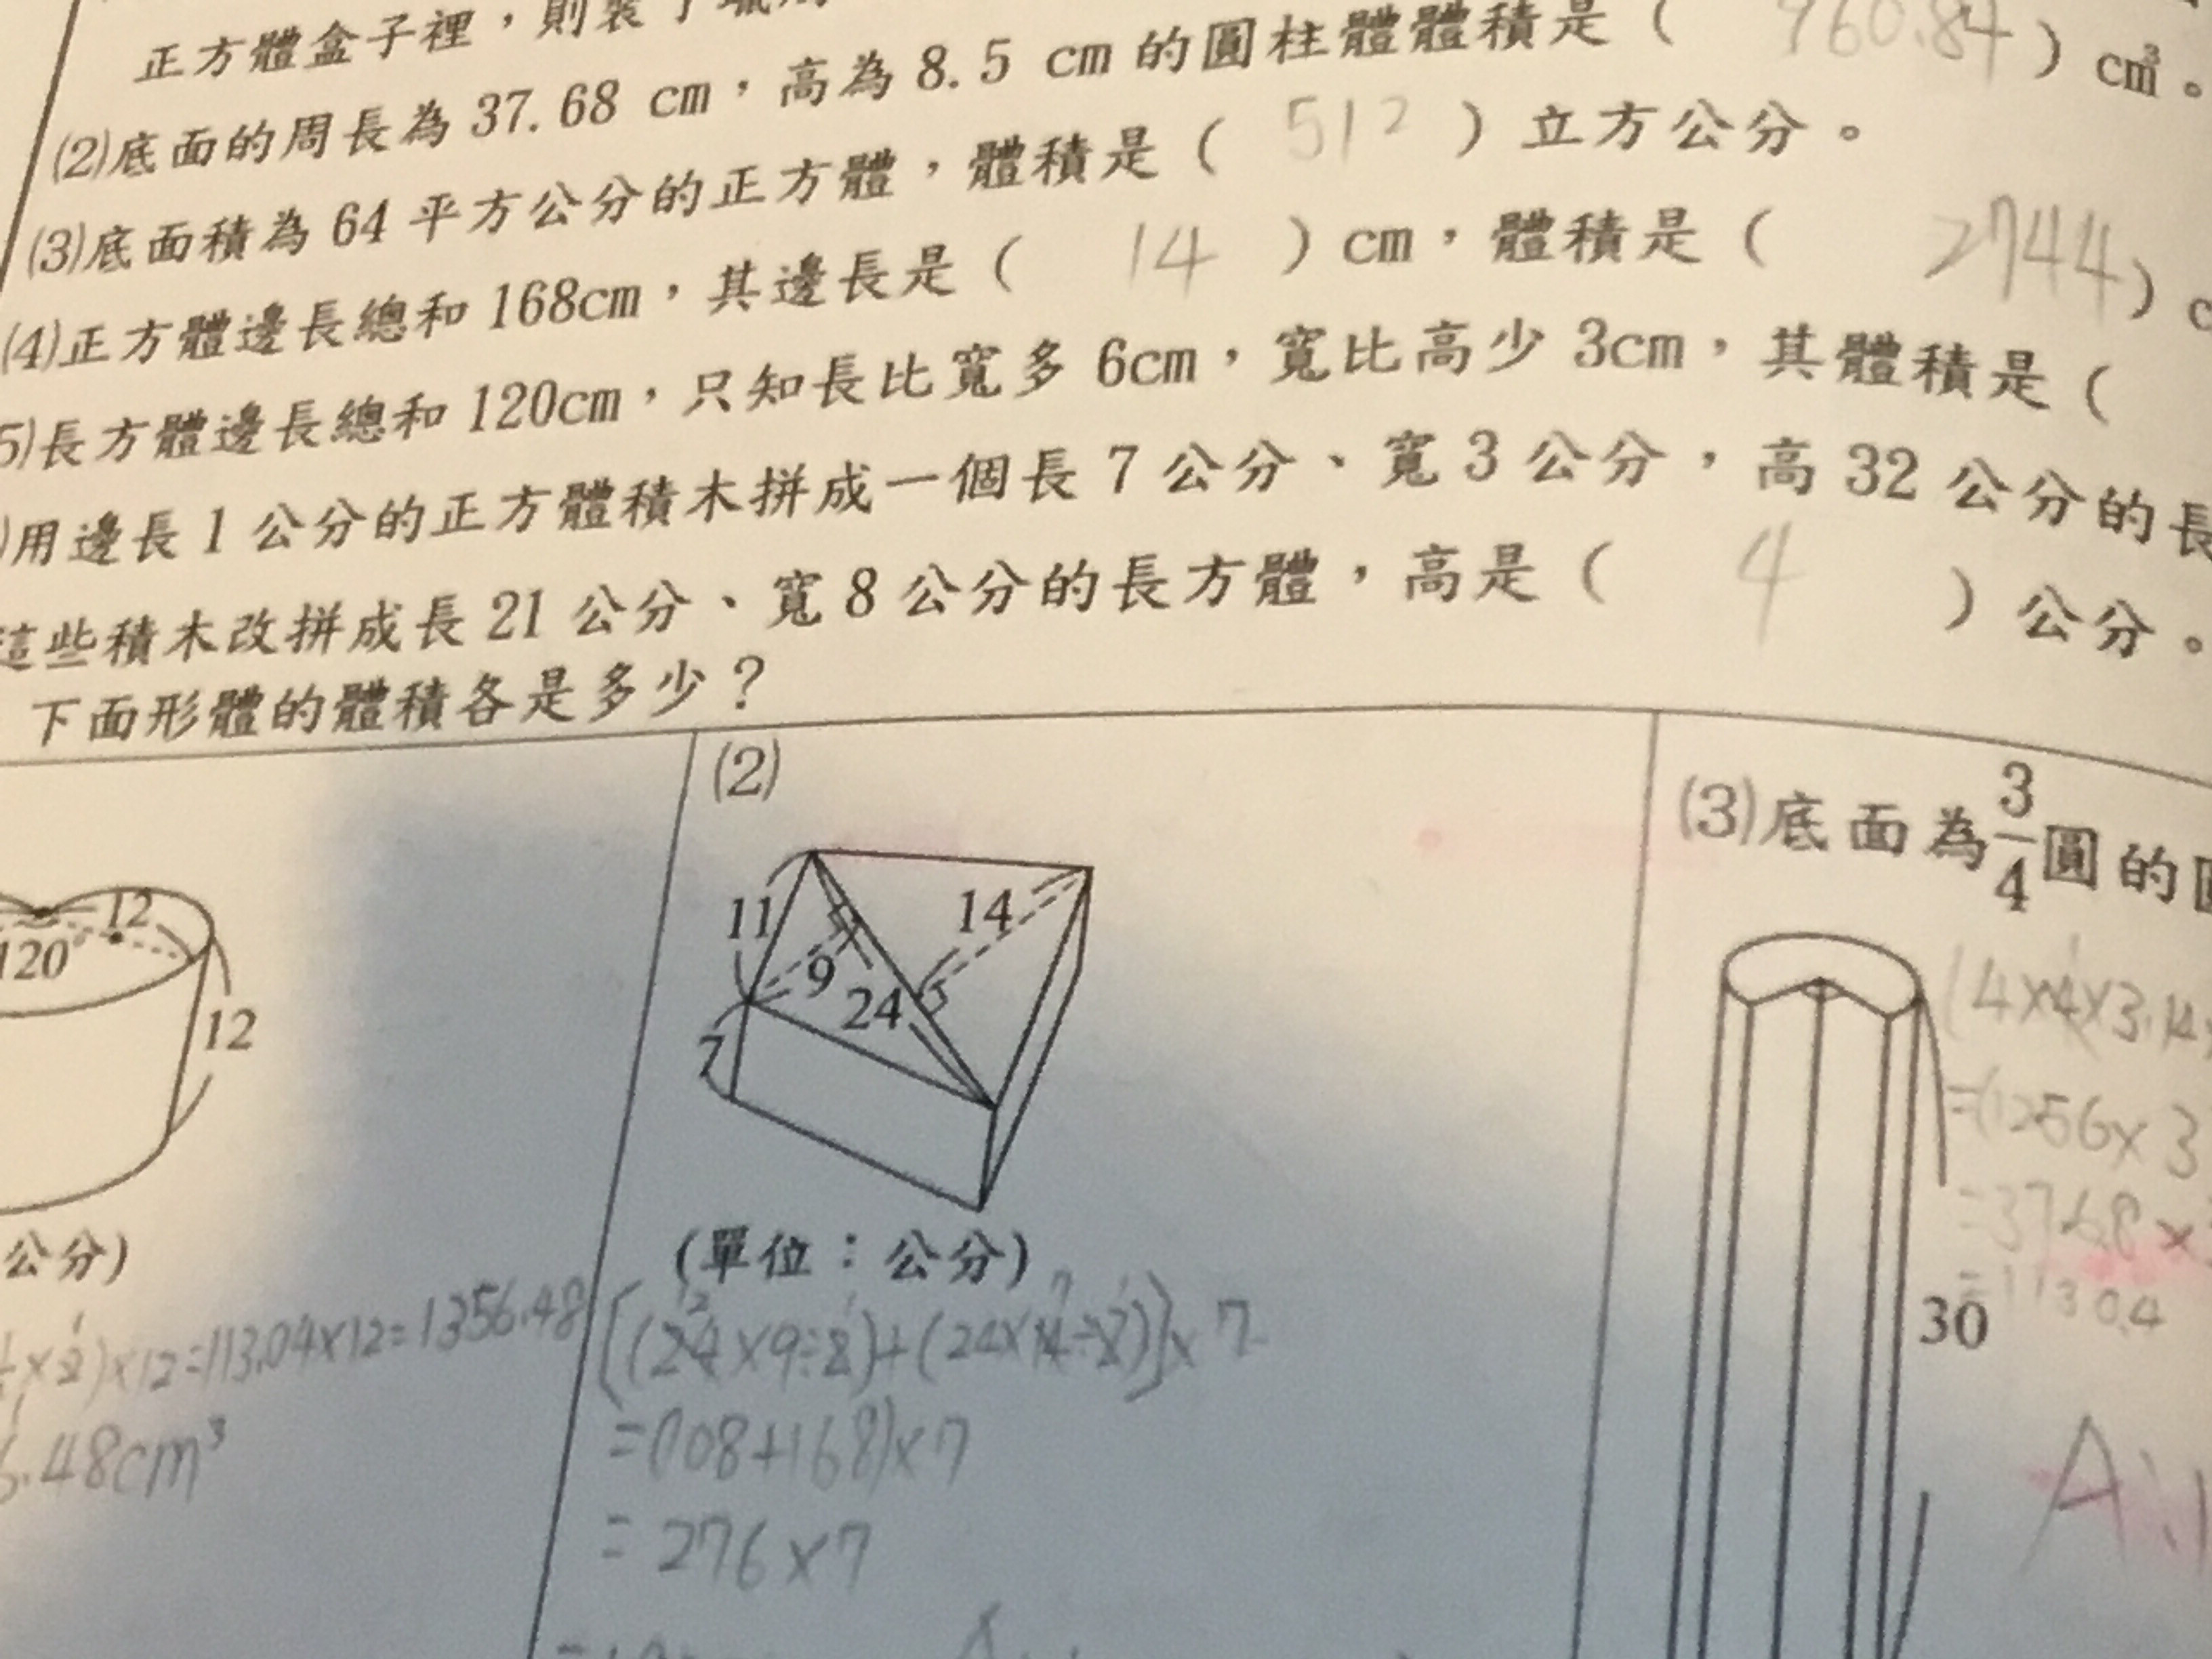 正方體盒子裡，則裝了
(2)底面的周長為 37.68 cm，高為 8.5 cm 的圓柱體體積是（ 960.84 ）cm³。
(3)底面積為 64 平方公分的正方體，體積是（ 512 ）立方公分。
(4)正方體邊長總和 168cm，其邊長是（ 14 ）cm，體積是（ 2744 ）c
5)長方體邊長總和 120cm，只知長比寬多 6cm，寬比高少 3cm，其體積是（
)用邊長 1 公分的正方體積木拼成一個長 7 公分、寬 3 公分，高 32 公分的長
這些積木改拼成長 21 公分、寬 8 公分的長方體，高是（ 4 ）公分。
下面形體的體積各是多少？
12
120°
12
公分)
)×12=113.04×12=1356.48
.48cm³
(2)
11
14
9
24
7
(單位：公分)
[(24×9÷2)+(24×14÷2)]×7
=(108+168)×7
=276×7
(3)底面為3/4圓的
(4×4×3.14
=(12.56×3
=37.68×
=1130.4
30
A:1